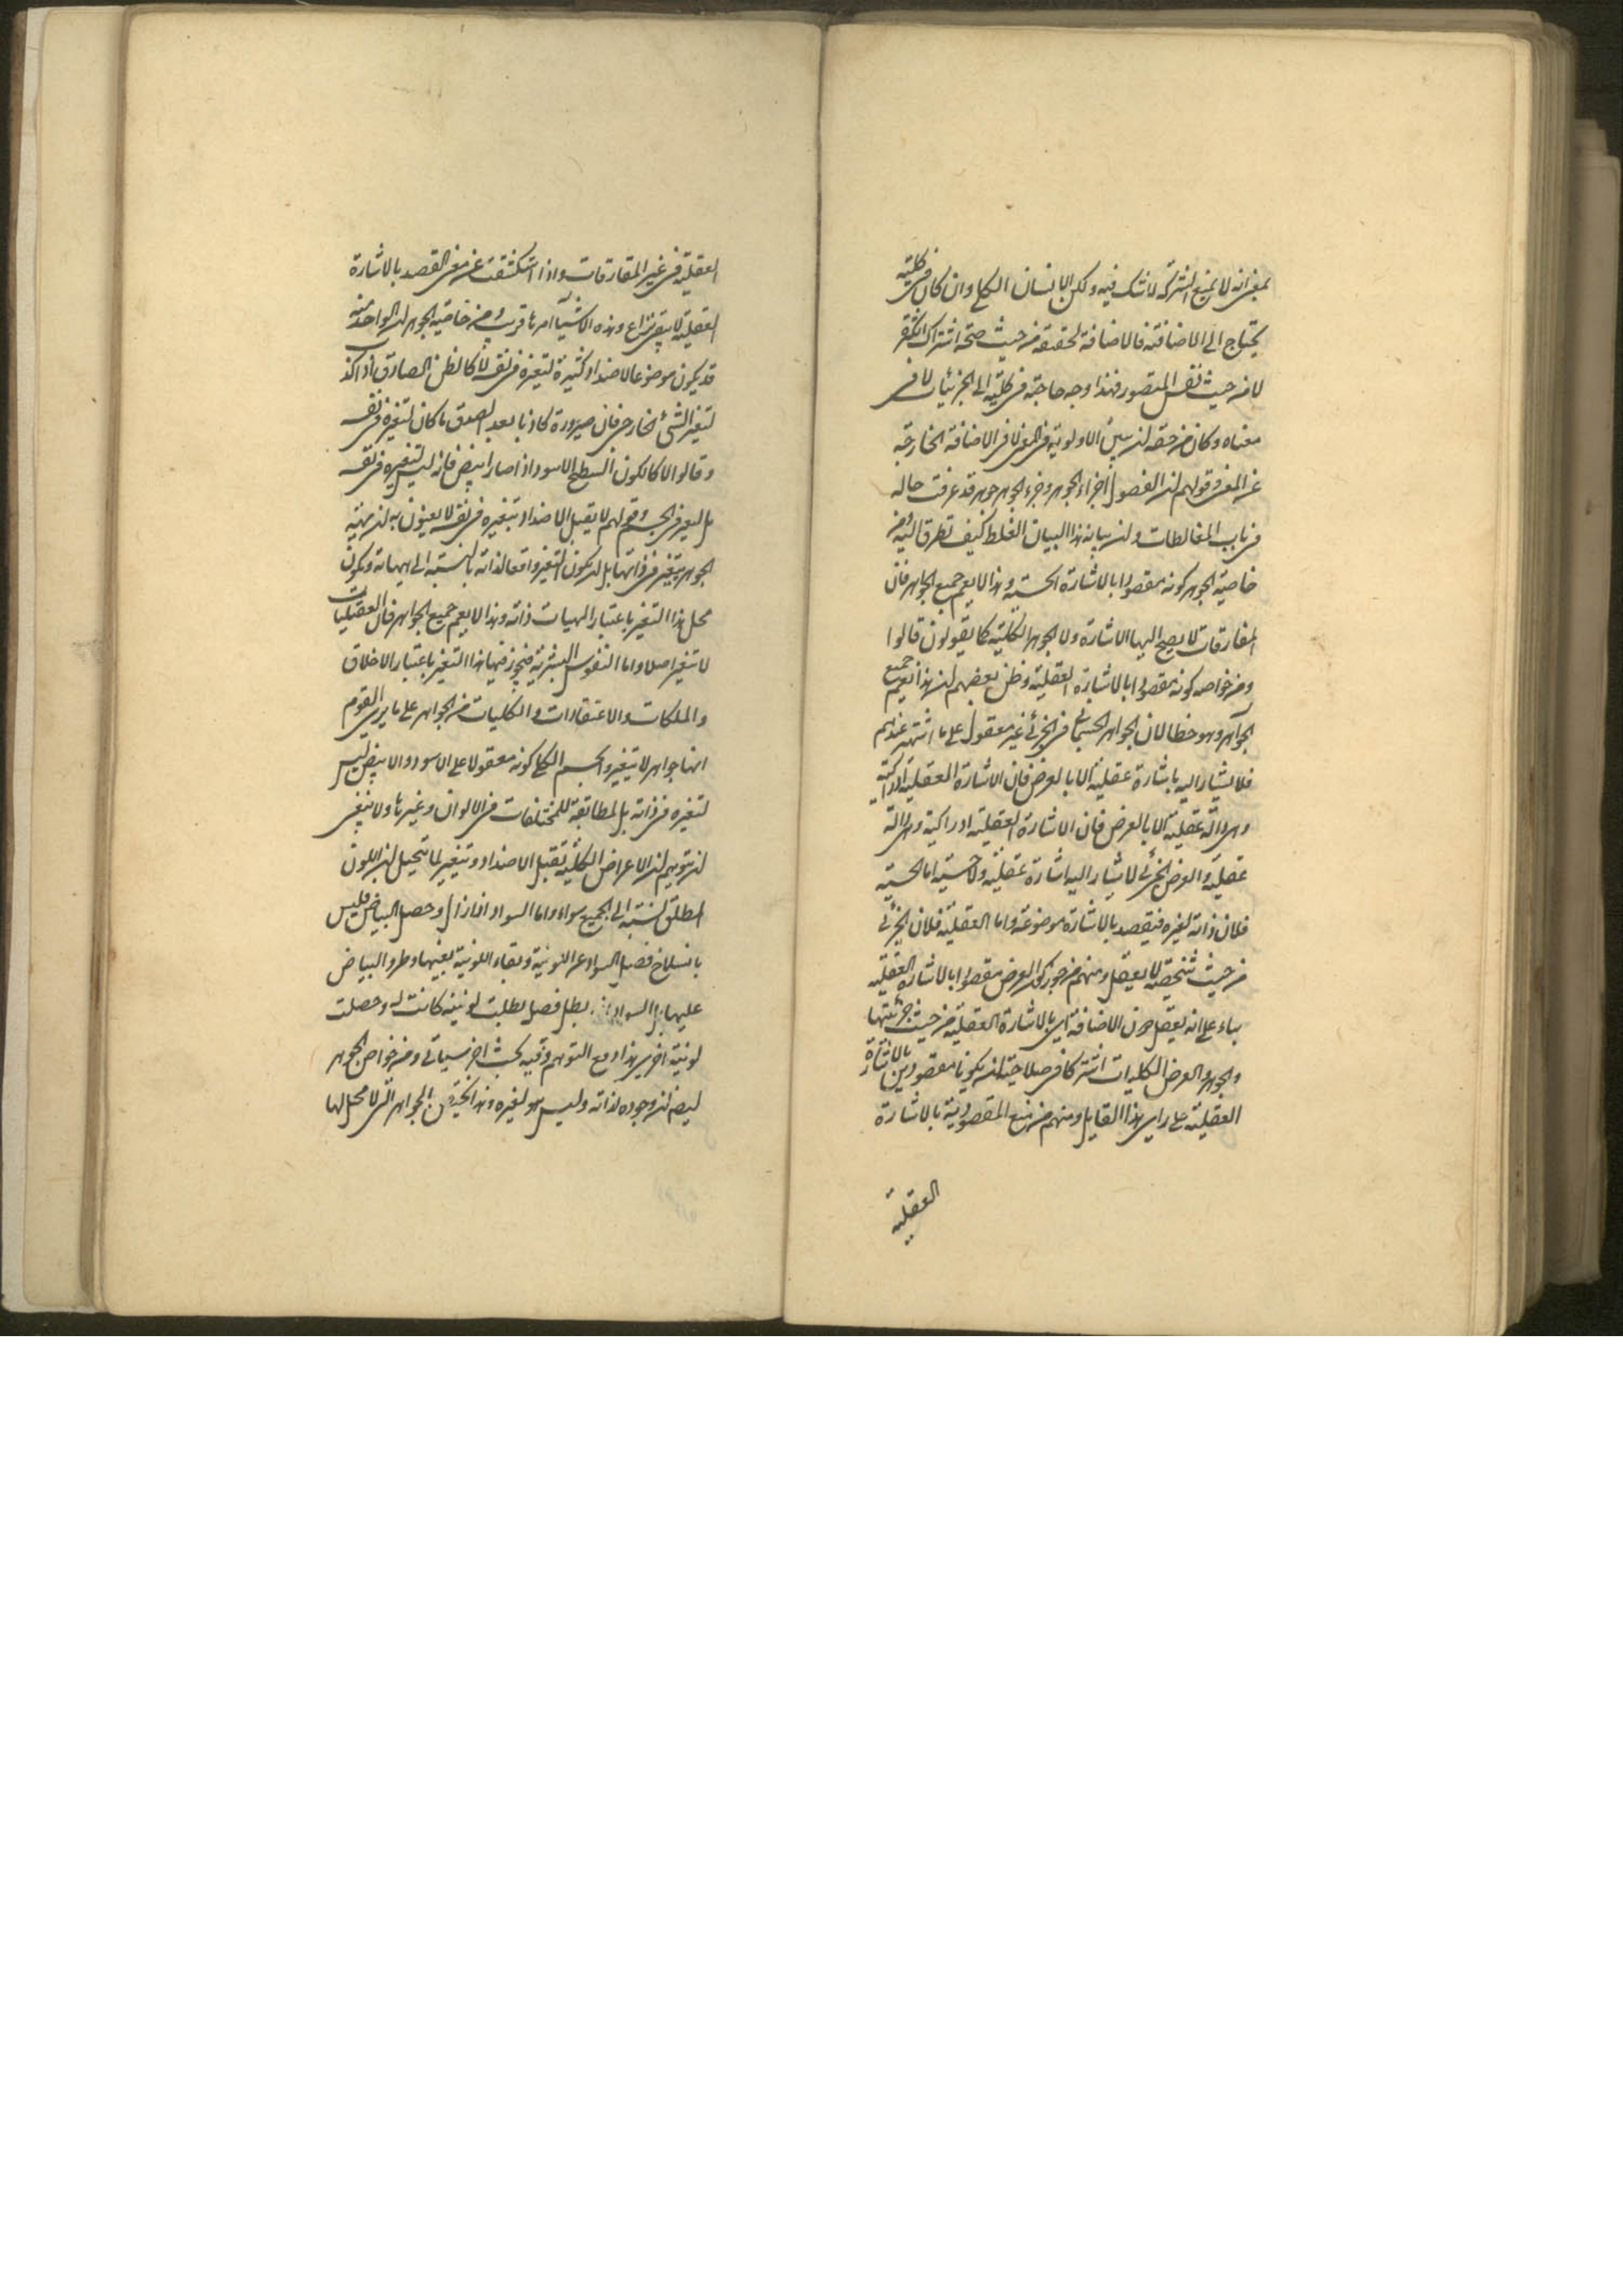 بمعنى انه لا يمنع الشركة لا شك فيه ولكن الانسان الكلى وان كان فى كليته
يحتاج الى الاضافة فالاضافة لحقته من حيث صحة اشتراك الكثرة
لا من حيث نفس المتصور فهذا وجه حاجته فى كليته الى الجزئيات لا فى
معناه وكان من حقه ان يبين الاولوية فى المعنى لا فى الاضافة الخارجة
عن المعنى وقولهم ان الفصول اجزاء الجوهر وجزء الجوهر جوهر قد عرفت حاله
فى باب المغالطات وان بيانه هذا البيان الغلط كيف تطرق اليه ومن
خاصية الجوهر كونه مقصودا بالاشارة الحسية وهذا لا يعم جميع الجواهر فان
المفارقات لا يصح اليها الاشارة ولا الجوهر الكلية كما يقولون قالوا
ومن خواصه كونه مقصودا بالاشارة العقلية وظن بعضهم ان هذا يعم جميع
الجواهر وهو خطا لان الجواهر الجسمانى الجزئى غير معقول على ما اشتهر عندهم
فلا يشار اليه باشارة عقلية الا بالعرض فان الاشارة العقلية ادراكية
وهى دالة عقلية الا بالعرض فان الاشارة العقلية ادراكية وهى دالة
عقلية والعرض الجزئى لا يشار اليه اشارة عقلية ولا حسية اما الحسية
فلان ذاته لغيره فيقصد بالاشارة موضوعه واما العقلية فلان الجزئى
من حيث شخصيته لا يعقل ومنهم من جوز كون العرض مقصودا بالاشارة العقلية
بناء على انه يعقل دون الاضافة اى بالاشارة العقلية من حيث جزئيتها
والجوهر والعرض الكليات اشتركا فى صلاحية ان يكونا مقصودين بالاشارة
العقلية على راى هذا القايل ومنهم من منع المقصودية بالاشارة
العقلية
العقلية فى غير المفارقات واذا استكشفت عن معنى القصد بالاشارة
العقلية لا يبقى نزاع وهذه الاشياء امرها قريب ومن خاصية الجوهر ان الواحد منه
قد يكون موضوعا لاضداد كثيرة لتغيره فى نفسه لا كالظن الصادق اذا كذب
لتغير الشئ الخارجى فان صيرورة كاذبا بعد الصدق ما كان لتغيره فى نفسه
وقالوا لا كالكون السطح الاسود اذا صار ابيض فانه ليس لتغيره فى نفسه
بل لتغير فى الجسم وقولهم لا يقبل الاضداد بتغيره فى نفسه لا يعنون به ان مهية
الجوهر يتغير فى ذاتها بل ان يكون التغير واقعا لذاته بالنسبة الى هيهاته ويكون
محل هذا التغير باعتبار الهيات ذاته وهذا لا يعم جميع الجواهر فان العقليات
لا تتغير اصلا واما النفوس البشرية فيجوز فيها هذا التغير باعتبار الاخلاق
والملكات والاعتقادات والكليات من الجواهر على ما يرى القوم
انها جواهر لا يتغير والجسم الكلى كونه مقولا على الاسود والابيض ليس
لتغيره فى ذاته بل لمطابقة للمختلفات فى الالوان وغيرها ولا ينبغى
ان يتوهم ان الاعراض الكلية تقبل الاضداد وتتغير لما يتخيل ان اللون
المطلق نسبته الى الجميع سواء واما السواد اذا زال وحصل البياض فليس
بانسلاخ فصل السواد عن اللونية وبقاء اللونية بعينها وطرو البياض
عليها بل السواد اذا بطل فصل بطلت لونيته كانت له وحصلت
لونية اخرى هذا دفع التوهم وفيه بحث اخر سياتى ومن خواص الجوهر
ايضا ان وجوده لذاته وليس هو لغيره وهذا يختص بالجواهر التى لا محل لها